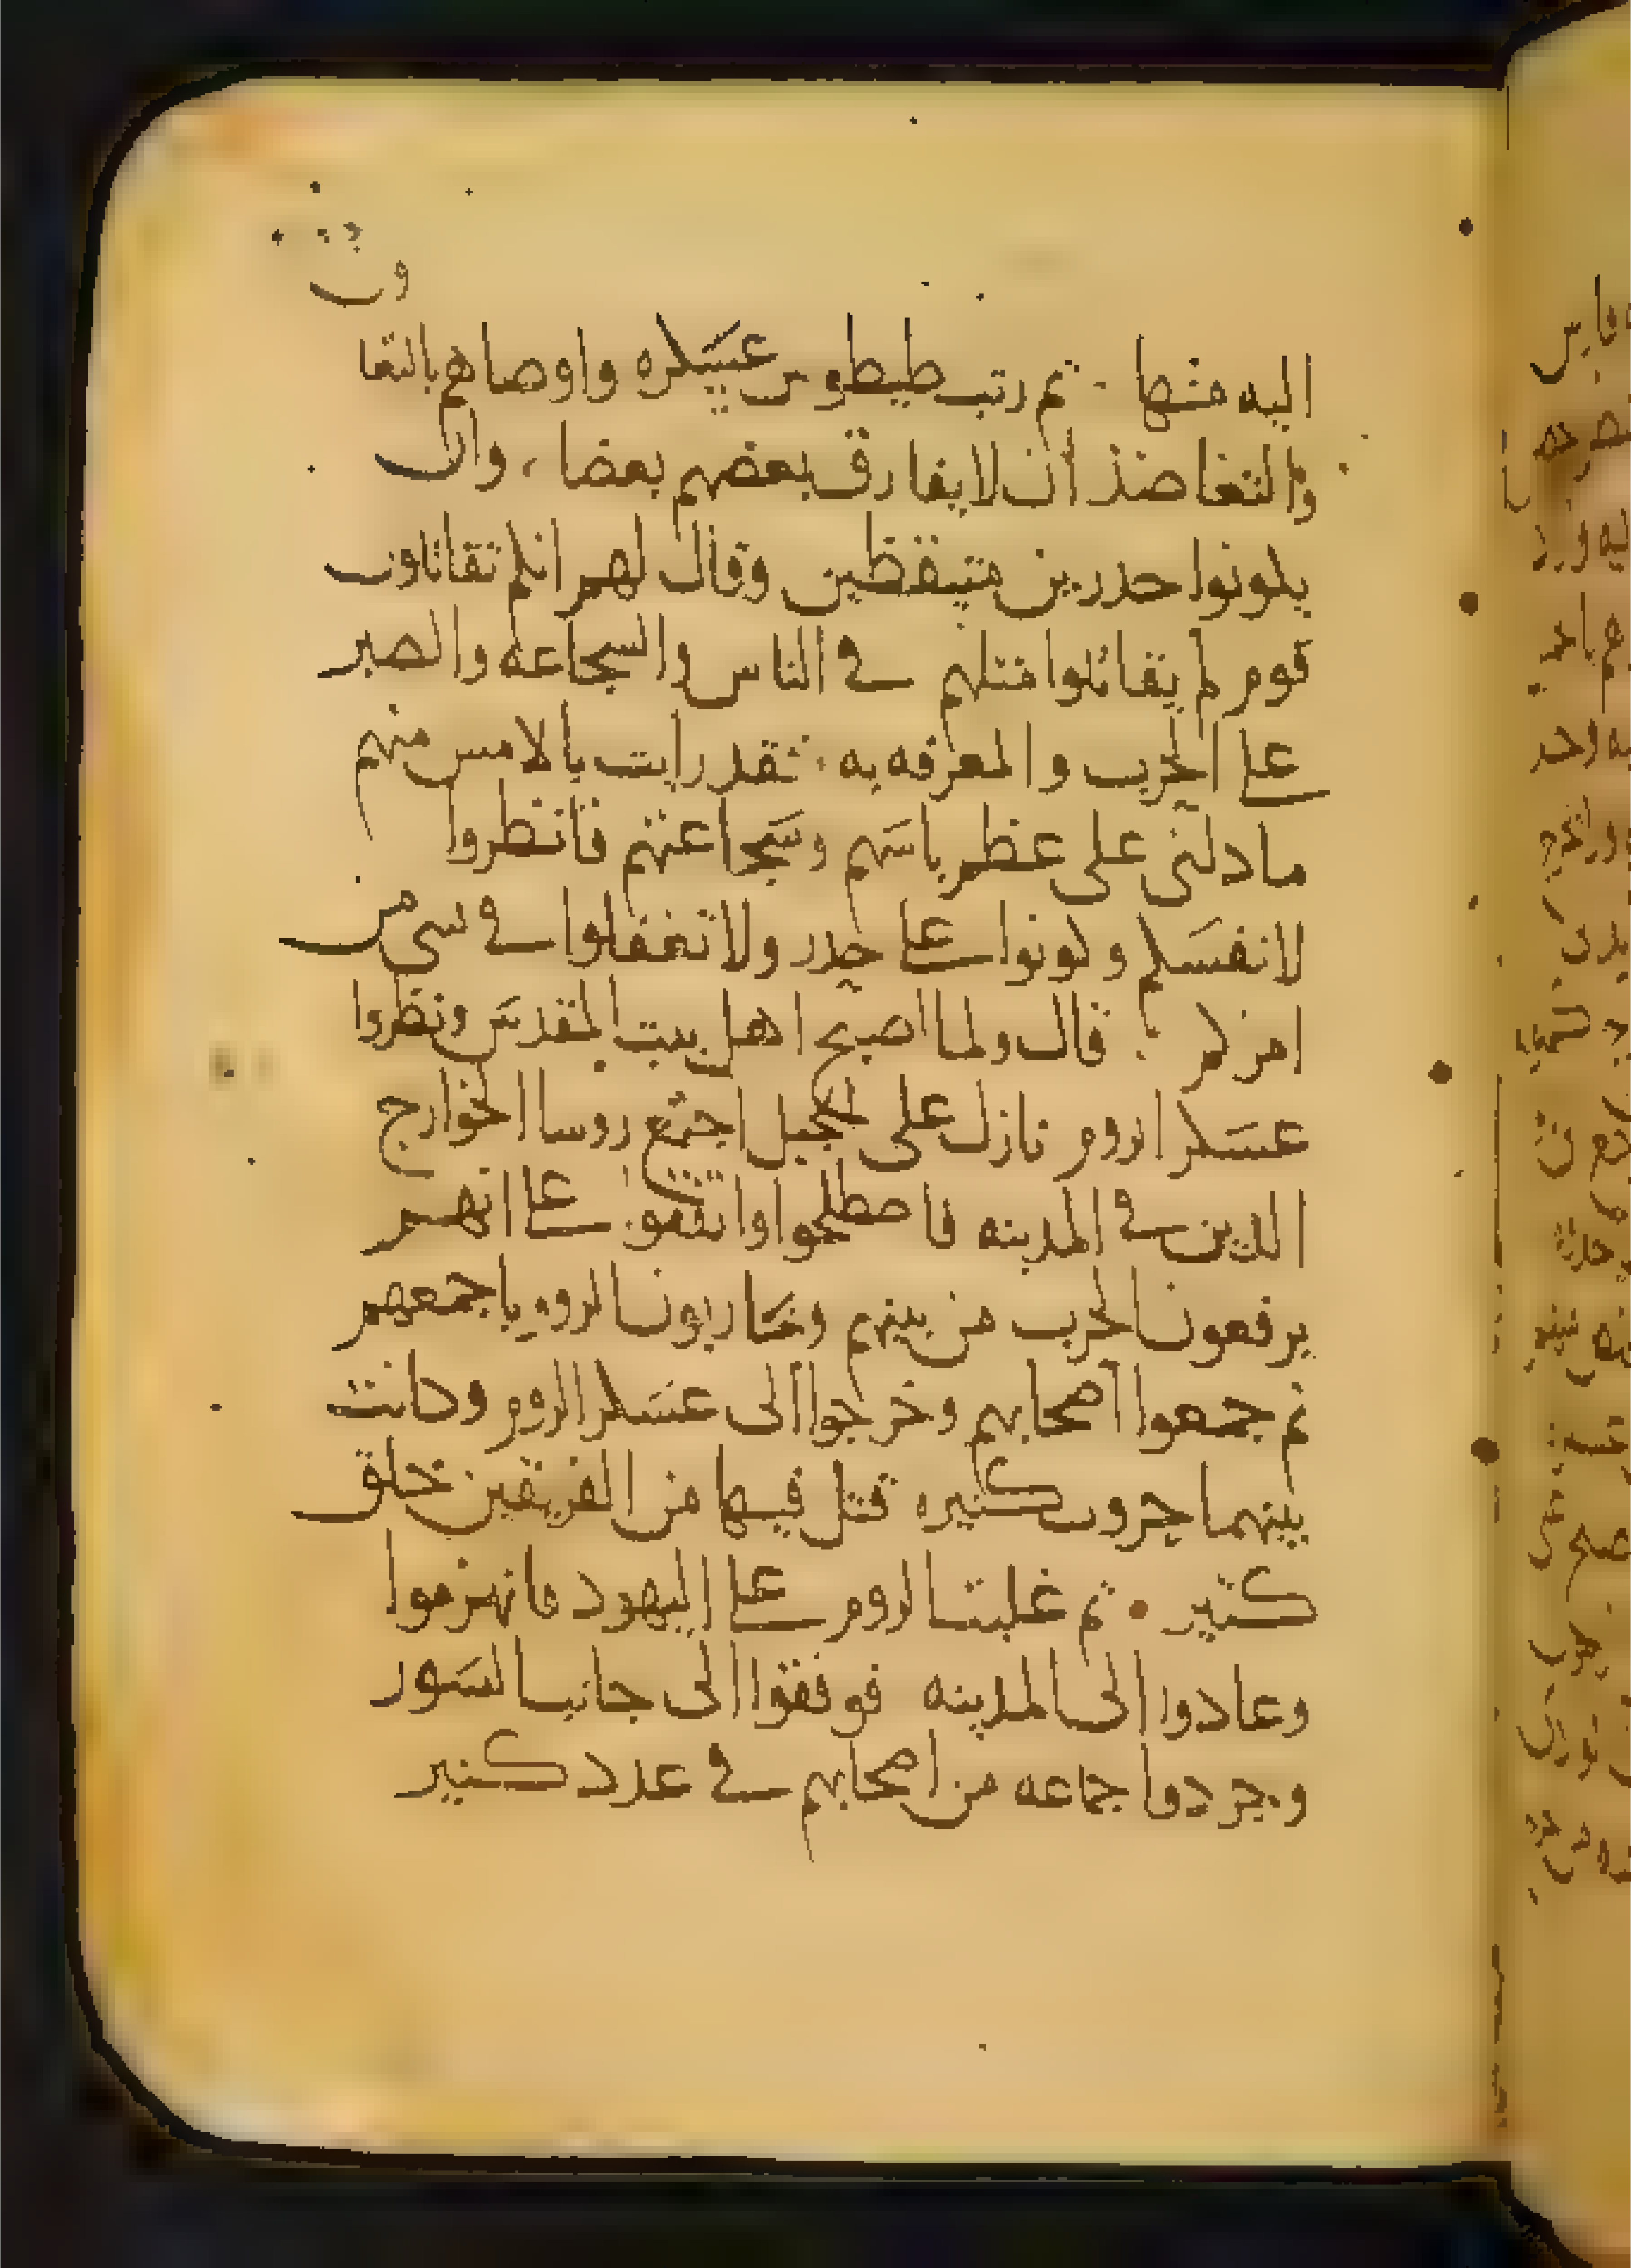 ون
اليه منها · ثم رتب طيطوس عسكره واوصاهم بالتعا
والتعاضد ان لا يفارق بعضهم بعضا ، وان
يكونوا حدرين متيقظين وقال لهم انكم تقاتلون
قوم لم يقاتلوا مثلهم في الناس والشجاعه والصبر
على الحرب والمعرفه به · فقد رايت بالامس منهم
ما دلنى على عظم باسهم وشجاعتهم فانظروا
لانفسكم وكونوا على حدر ولا تغفلوا في شي من
امركم · قال ولما اصبح اهل بيت المقدس ونظروا
عسكر الروم نازل على الجبل اجتمع روسا الخوارج
الدين في المدينه فاصطلحوا واتفقوا على انهم
يرفعون الحرب من بينهم ويحاربون الروم باجمعهم
ثم جمعوا اصحابهم وخرجوا الى عسكر الروم وكانت
بينهما حروب كثيره قتل فيها من الفريقين خلق
كثير · ثم غلبت الروم على اليهود فانهزموا
وعادوا الى المدينه فوقفوا الى جانب السور
وجردوا جماعه من اصحابهم في عدد كثير